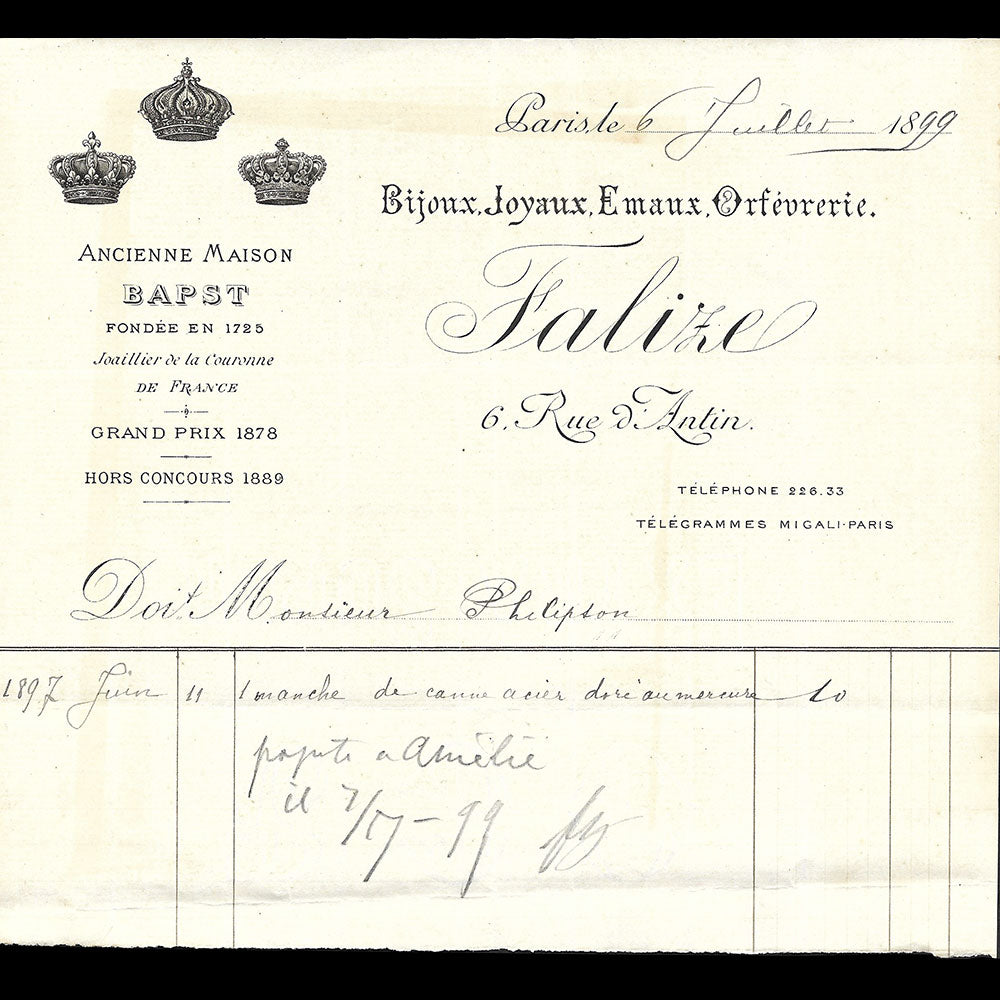 Paris, le 6 Juillet 1899
Bijoux, Joyaux, Emaux, Orfévrerie.
Falize
6, Rue d'Antin.
TÉLÉPHONE 226.33
TÉLÉGRAMMES MIGALI-PARIS
ANCIENNE MAISON
BAPST
FONDÉE EN 1725
Joaillier de la Couronne
DE FRANCE
GRAND PRIX 1878
HORS CONCOURS 1889
Doit Monsieur Philipson
1897 Juin 11 1 manche de canne acier doré au mercure 10
a Amélie
il 7/17-99